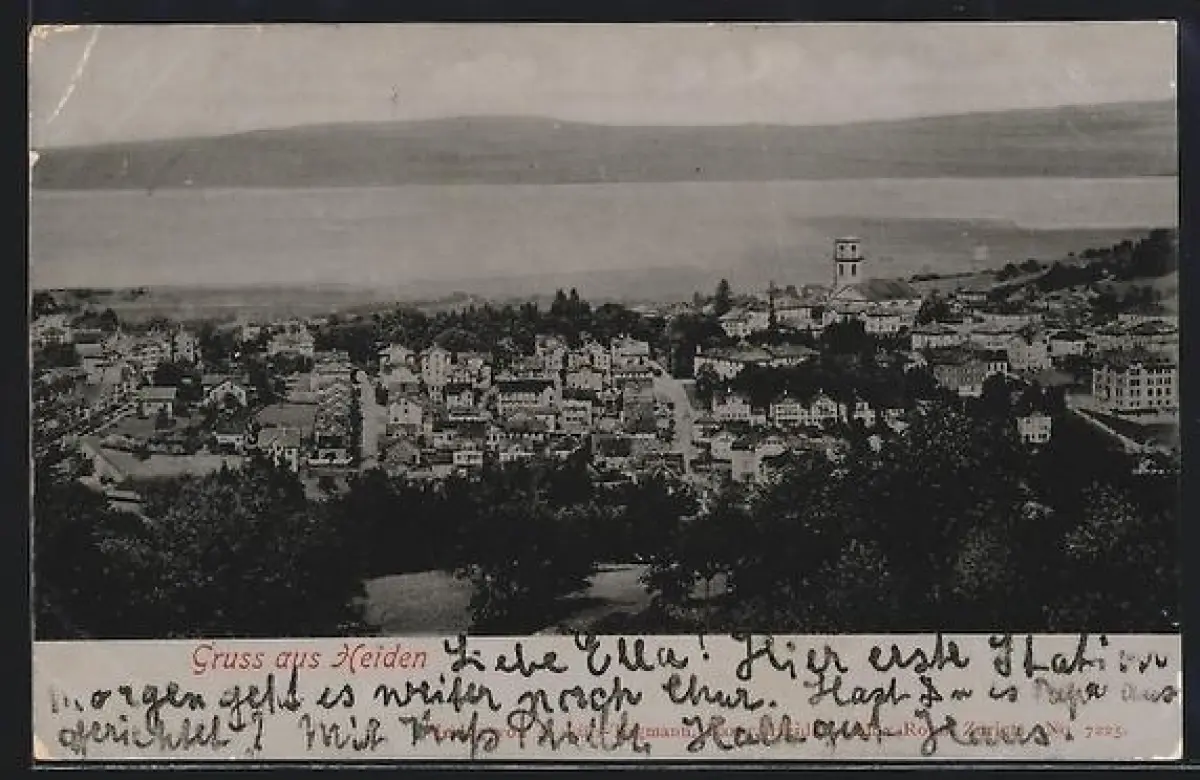 Gruss aus Heiden Liebe Ella! Hier erste Station
morgen geht es weiter nach Chur. Hast Du es Papa aus
gerichtet? Mit Kuß Halt gut Zürich. No. 7225.